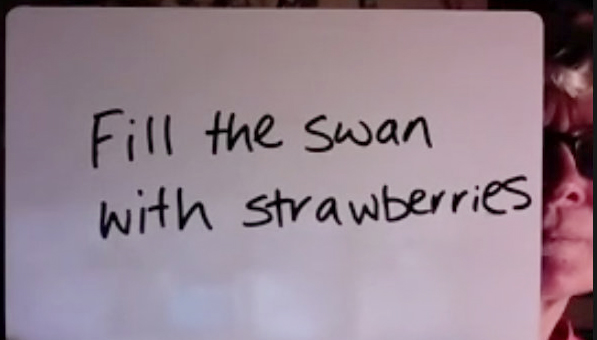 Fill the swan
with strawberries